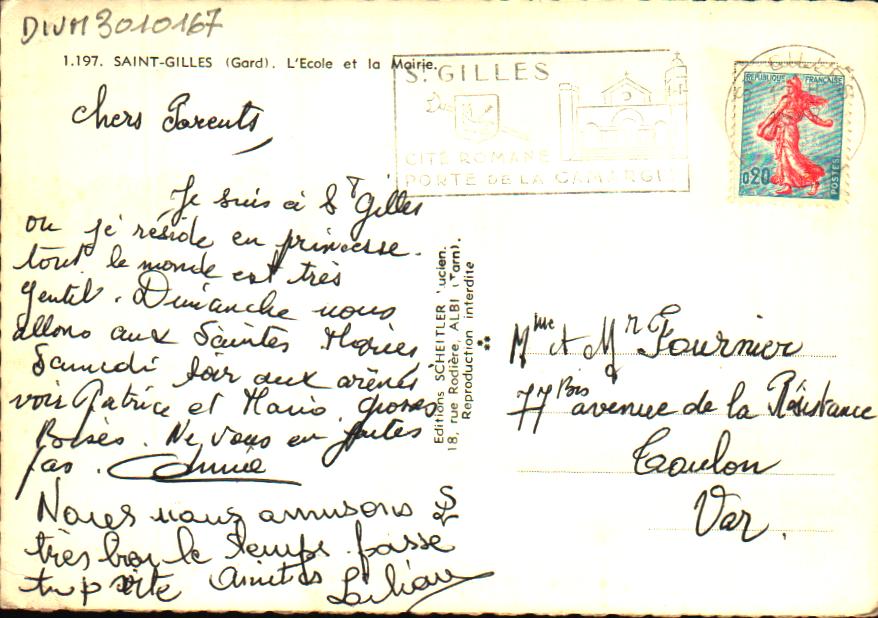 DIVM3010167
1.197. SAINT-GILLES (Gard). L'Ecole et la Mairie.
St GILLES
CITÉ ROMANE
PORTE DE LA CAMARGUE
REPUBLIQUE FRANÇAISE
0,20
POSTES
chers Parents,
Je suis à St Gilles
ou je réside en princesse.
tout le monde est très
gentil. Dimanche nous
allons aux Saintes Maries
Samedi soir aux arènes
voir Patrice et Mario. Grosses
Bises. Ne vous en faites
pas. Annie
Nous nous amusons
très bien le temps passe
trop vite Amitiés Liliane
Editions SCHEITLER Lucien.
18, rue Rodière, ALBI (Tarn).
Reproduction interdite
Mme et Mr Fournier
77 Bis avenue de la Résistance
Toulon
Var.